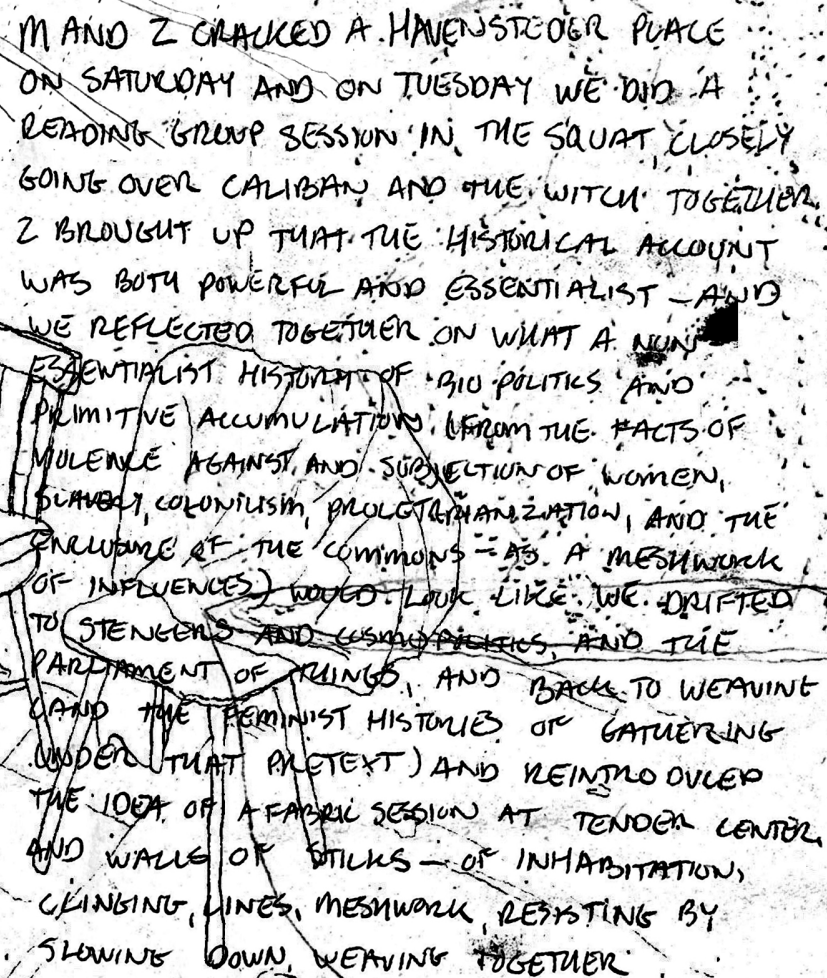 M AND Z CRACKED A HAVENSTEDER PLACE
ON SATURDAY AND ON TUESDAY WE DID A
READING GROUP SESSION IN THE SQUAT, CLOSELY
GOING OVER CALIBAN AND THE WITCH TOGETHER.
Z BROUGHT UP THAT THE HISTORICAL ACCOUNT
WAS BOTH POWERFUL AND ESSENTIALIST – AND
WE REFLECTED TOGETHER ON WHAT A NON
ESSENTIALIST HISTORY OF BIO POLITICS AND
PRIMITIVE ACCUMULATION (FROM THE FACTS OF
VIOLENCE AGAINST AND SUBJECTION OF WOMEN,
SLAVERY, COLONILISM, PROLETARIANIZATION, AND THE
ENCLOSURE OF THE COMMONS – AS A MESHWORK
OF INFLUENCES) WOULD LOOK LIKE. WE DRIFTED
TO STENGERS AND COSMOPOLITICS, AND THE
PARLIAMENT OF THINGS, AND BACK TO WEAVING
(AND THE FEMINIST HISTORIES OF GATHERING
UNDER THAT PRETEXT) AND REINTRODUCED
THE IDEA OF A FABRIC SESSION AT TENDER CENTER,
AND WALLS OF STICKS – OF INHABITATION,
CLINGING, LINES, MESHWORK, RESISTING BY
SLOWING DOWN, WEAVING TOGETHER